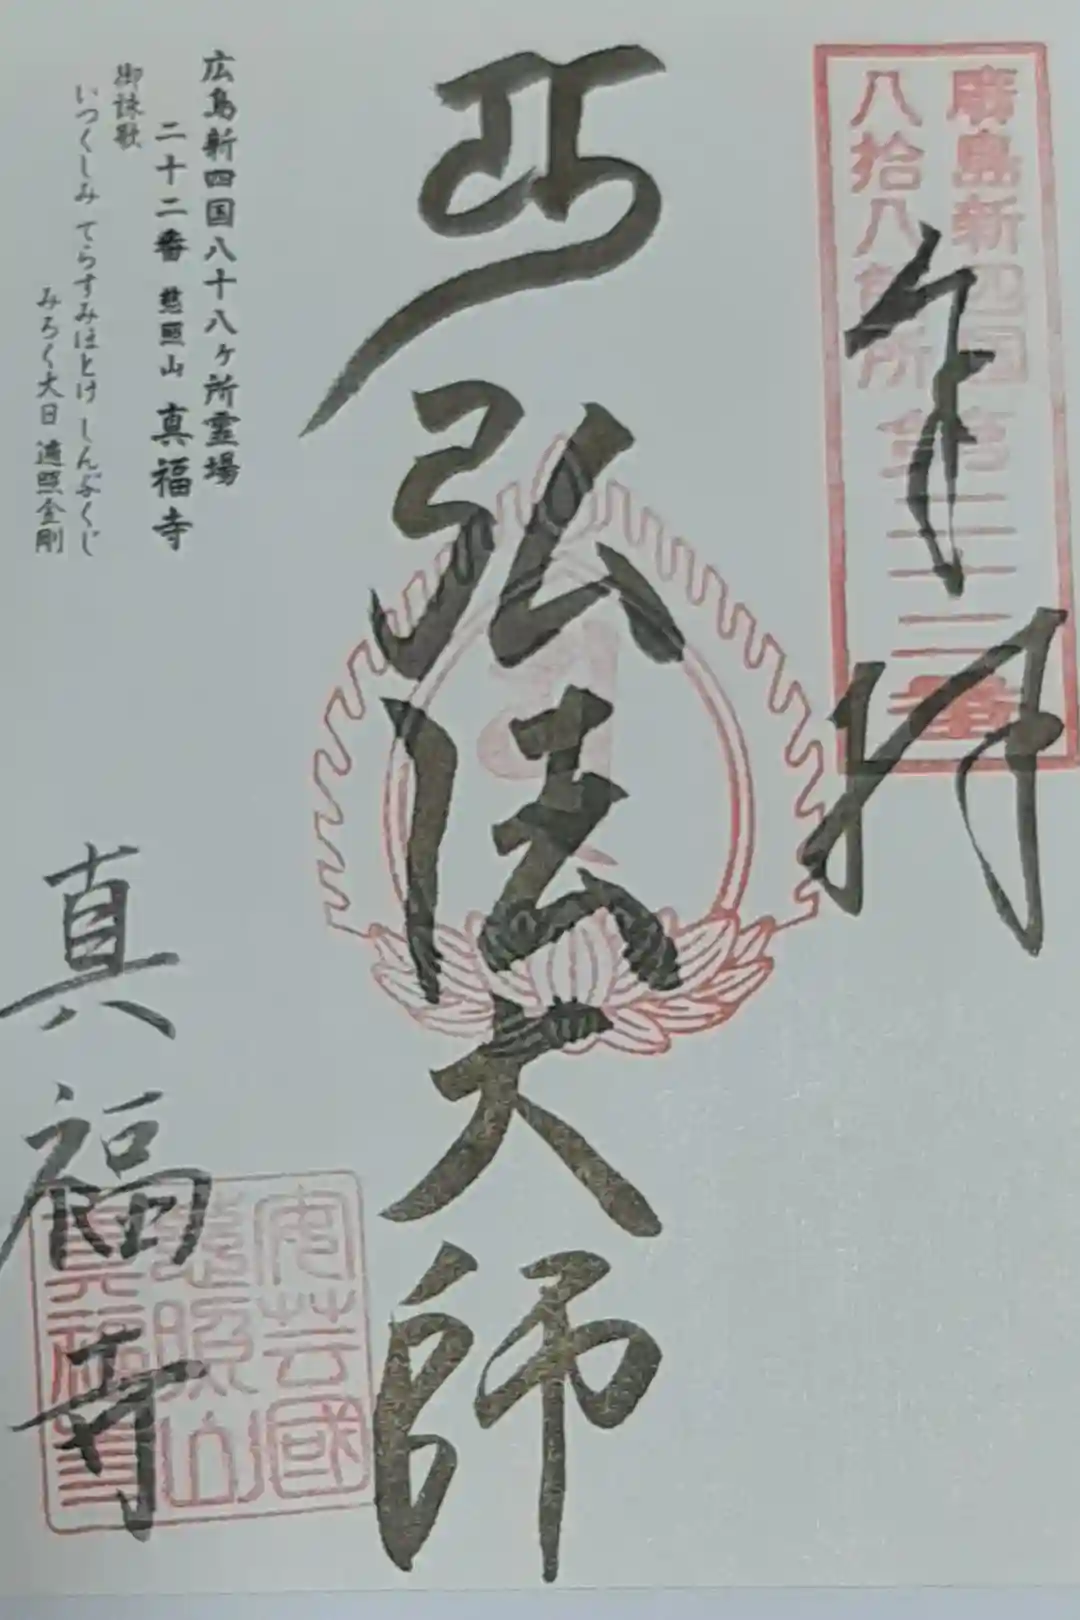 廣島新四国
八拾八ヶ所第二十二番
奉拝
弘法大師
広島新四国八十八ヶ所霊場
二十二番 慈照山 真福寺
御詠歌
いつくしみ てらすみほとけ しんぷくじ
みろく大日 遍照金剛
真福寺
安芸國
慈照山
真福寺